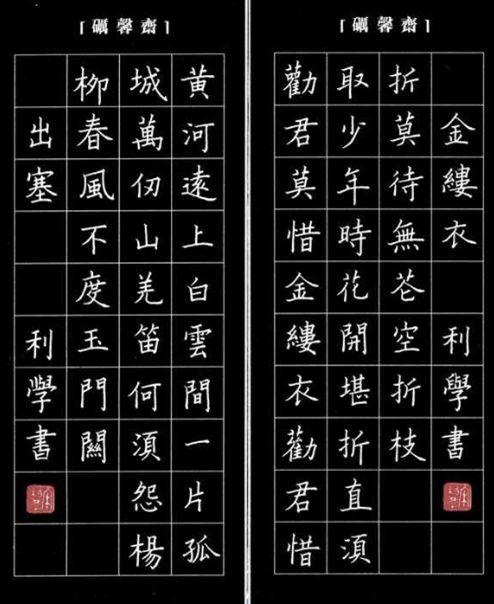 「礪馨齋」
黄河遠上白雲間一片孤
城萬仞山羌笛何須怨楊
柳春風不度玉門關
出塞
利學書
「礪馨齋」
勸君莫惜金縷衣勸君惜
取少年時花開堪折直須
折莫待無花空折枝
金縷衣
利學書